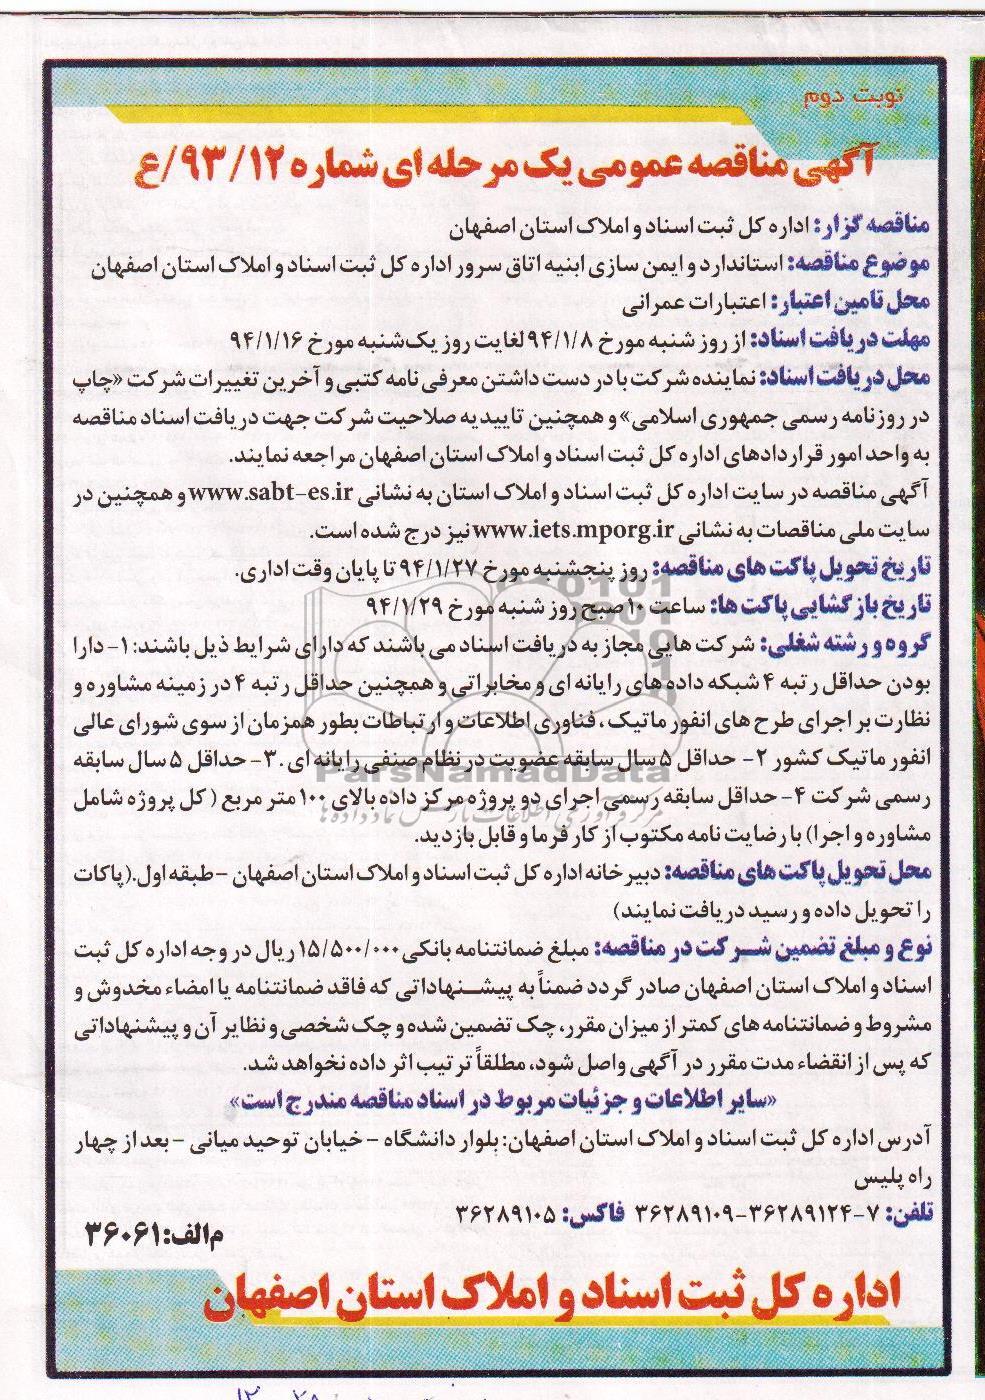 نوبت دوم
آگهی مناقصه عمومی یک مرحله ای شماره ۹۳/۱۲/ع
مناقصه گزار: اداره کل ثبت اسناد و املاک استان اصفهان
موضوع مناقصه: استاندارد و ایمن سازی ابنیه اتاق سرور اداره کل ثبت اسناد و املاک استان اصفهان
محل تامین اعتبار: اعتبارات عمرانی
مهلت دریافت اسناد: از روز شنبه مورخ ۹۴/۱/۸ لغایت روز یک‌شنبه مورخ ۹۴/۱/۱۶
محل دریافت اسناد: نماینده شرکت با در دست داشتن معرفی نامه کتبی و آخرین تغییرات شرکت «چاپ
در روزنامه رسمی جمهوری اسلامی» و همچنین تاییدیه صلاحیت شرکت جهت دریافت اسناد مناقصه
به واحد امور قراردادهای اداره کل ثبت اسناد و املاک استان اصفهان مراجعه نمایند.
آگهی مناقصه در سایت اداره کل ثبت اسناد و املاک استان به نشانی www.sabt-es.ir و همچنین در
سایت ملی مناقصات به نشانی www.iets.mporg.ir نیز درج شده است.
تاریخ تحویل پاکت های مناقصه: روز پنجشنبه مورخ ۹۴/۱/۲۷ تا پایان وقت اداری.
تاریخ بازگشایی پاکت ها: ساعت ۱۰ صبح روز شنبه مورخ ۹۴/۱/۲۹
گروه و رشته شغلی: شرکت هایی مجاز به دریافت اسناد می باشند که دارای شرایط ذیل باشند: ۱- دارا
بودن حداقل رتبه ۴ شبکه داده های رایانه ای و مخابراتی و همچنین حداقل رتبه ۴ در زمینه مشاوره و
نظارت بر اجرای طرح های انفورماتیک ، فناوری اطلاعات و ارتباطات بطور همزمان از سوی شورای عالی
انفورماتیک کشور ۲- حداقل ۵ سال سابقه عضویت در نظام صنفی رایانه ای . ۳- حداقل ۵ سال سابقه
رسمی شرکت ۴- حداقل سابقه رسمی اجرای دو پروژه مرکز داده بالای ۱۰۰ متر مربع ( کل پروژه شامل
مشاوره و اجرا) با رضایت نامه مکتوب از کارفرما و قابل بازدید.
محل تحویل پاکت های مناقصه: دبیرخانه اداره کل ثبت اسناد و املاک استان اصفهان - طبقه اول.(پاکات
را تحویل داده و رسید دریافت نمایند)
نوع و مبلغ تضمین شرکت در مناقصه: مبلغ ضمانتنامه بانکی ۱۵/۵۰۰/۰۰۰ ریال در وجه اداره کل ثبت
اسناد و املاک استان اصفهان صادر گردد ضمناً به پیشنهاداتی که فاقد ضمانتنامه یا امضاء مخدوش و
مشروط و ضمانتنامه های کمتر از میزان مقرر، چک تضمین شده و چک شخصی و نظایر آن و پیشنهاداتی
که پس از انقضاء مدت مقرر در آگهی واصل شود، مطلقاً ترتیب اثر داده نخواهد شد.
«سایر اطلاعات و جزئیات مربوط در اسناد مناقصه مندرج است»
آدرس اداره کل ثبت اسناد و املاک استان اصفهان: بلوار دانشگاه - خیابان توحید میانی - بعد از چهار
راه پلیس
تلفن: ۷-۳۶۲۸۹۱۲۴-۳۶۲۸۹۱۰۹ فاکس: ۳۶۲۸۹۱۰۵
م الف: ۳۶۰۶۱
اداره کل ثبت اسناد و املاک استان اصفهان
ParsNamadData